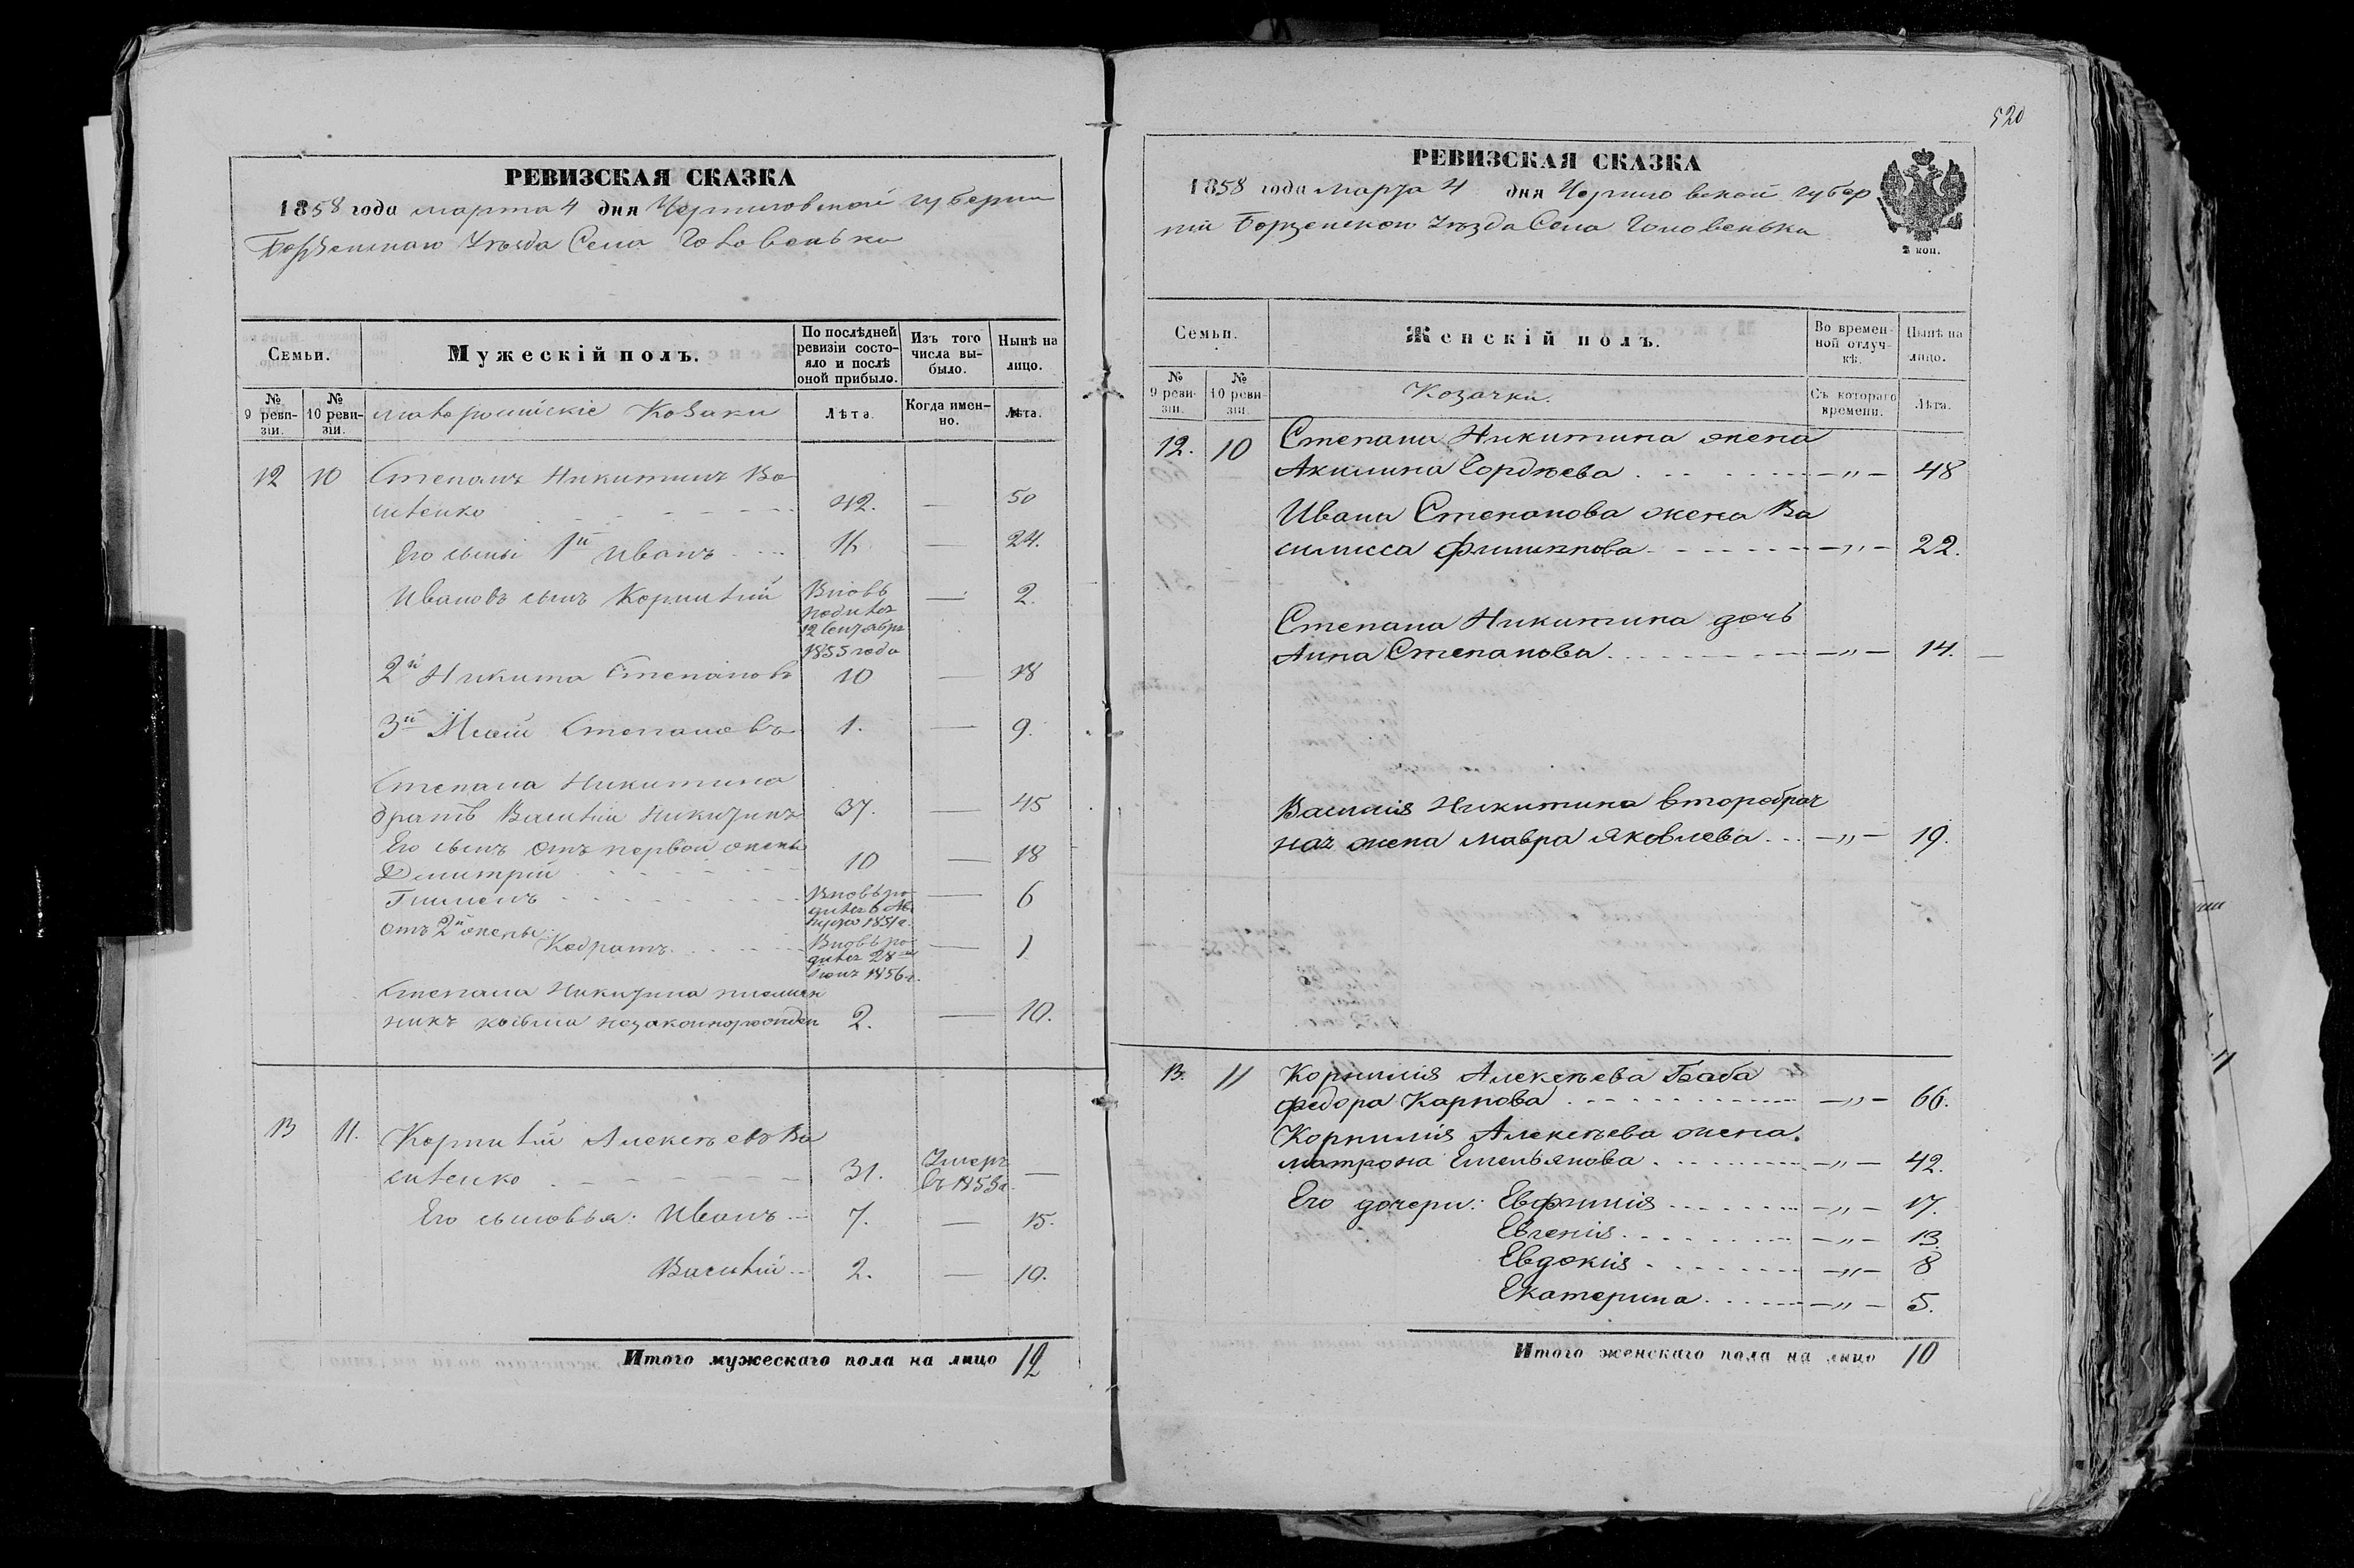 РЕВИЗСКАЯ СКАЗКА
1858 года марта 4 дня Черниговской губернии
Борзенскаго Уѣзда Села Головеньки
Семьи.
Мужескій полъ.
По послѣдней
ревизіи состо-
яло и послѣ
оной прибыло.
Изъ того
числа вы-
было.
Нынѣ на
лицо.
№
9 реви-
зіи.
№
10 реви-
зіи.
малороссійскіе Козаки
Лѣта.
Когда имен-
но.
Лѣта.
12 10 Степанъ Никитинъ Ва
силенко 42. — 50
Его сыны 1й Иванъ 16 — 24.
Ивановъ сынъ Корнилій Вновь — 2.
родился
12 Сентября
1855 года
2й Никита Степановъ 10 — 18
3й Степановъ 1. — 9.
Степана Никитина
братъ Василій Никитинъ 37. — 45
Его сынъ отъ первой жены
Димитрій 10 — 18
Вновь ро — 6
дился 6
1851г.
отъ 2й жены: Кодратъ Вновь ро — 1
дился 28
1856г.
Степана Никитина племян
никъ Козьма незаконнорожден 2. — 10.
13 11. Корнилій Алексѣевъ Ва
силенко 31. Умеръ —
въ 1853г.
Его сыновья: Иванъ 7. — 15.
Василій 2. — 10.
Итого мужескаго пола на лицо 12
520
РЕВИЗСКАЯ СКАЗКА
1858 года марта 4 дня Черниговской губер
ніи Борзенскаго Уѣзда Села Головеньки
2 коп.
Семьи.
Женскій полъ.
Во времен-
ной отлуч-
кѣ.
Нынѣ на
лицо.
№
9 реви-
зіи.
№
10 реви-
зіи.
Козачки.
Съ котораго
времени.
Лѣта.
12. 10 Степана Никитина жена
Акилина Гордѣева — " — 48
Ивана Степанова жена Ва
силисса Филиппова — " — 22.
Степана Никитина дочь
Анна Степанова — " — 14.
Василія Никитина второбрач
ная жена Мавра Яковлева — " — 19.
13. 11 Корнилія Алексѣева баба
Федора Карпова — " — 66.
Корнилія Алексѣева жена
Матрона Емельянова — " — 42.
Его дочери: Евфимія — " — 17.
Евгенія — " — 13.
Евдокія — " — 8
Екатерина — " — 5.
Итого женскаго пола на лицо 10